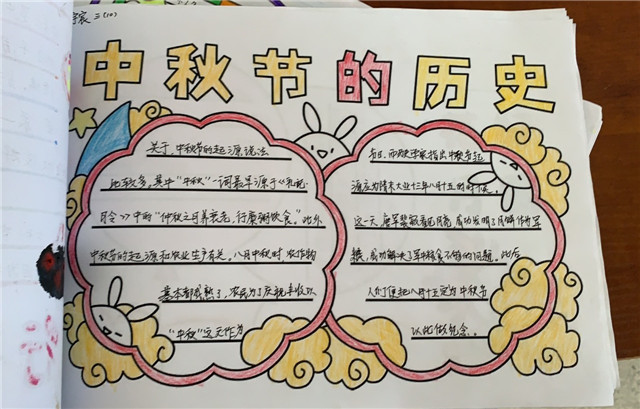 宇宸 三(10)
中秋节的历史
关于中秋节的起源说法
比较多,其中“中秋”一词最早源于《礼记·
月令》中的“仲秋之月养衰老,行糜粥饮食。”此外
中秋节的起源和农业生产有关,八月中秋时 农作物
基本都成熟了,农民为了庆祝丰收以
“中秋”这天作为
节日。而史学家指出中秋节起
源应为隋末大业十三年八月十五的时候。
这一天,唐军裴寂看着月亮,成功发明了月饼作为军
饷,成功解决了军中粮食不够的问题。此后
人们便把八月十五定为 中秋节
以此做纪念。